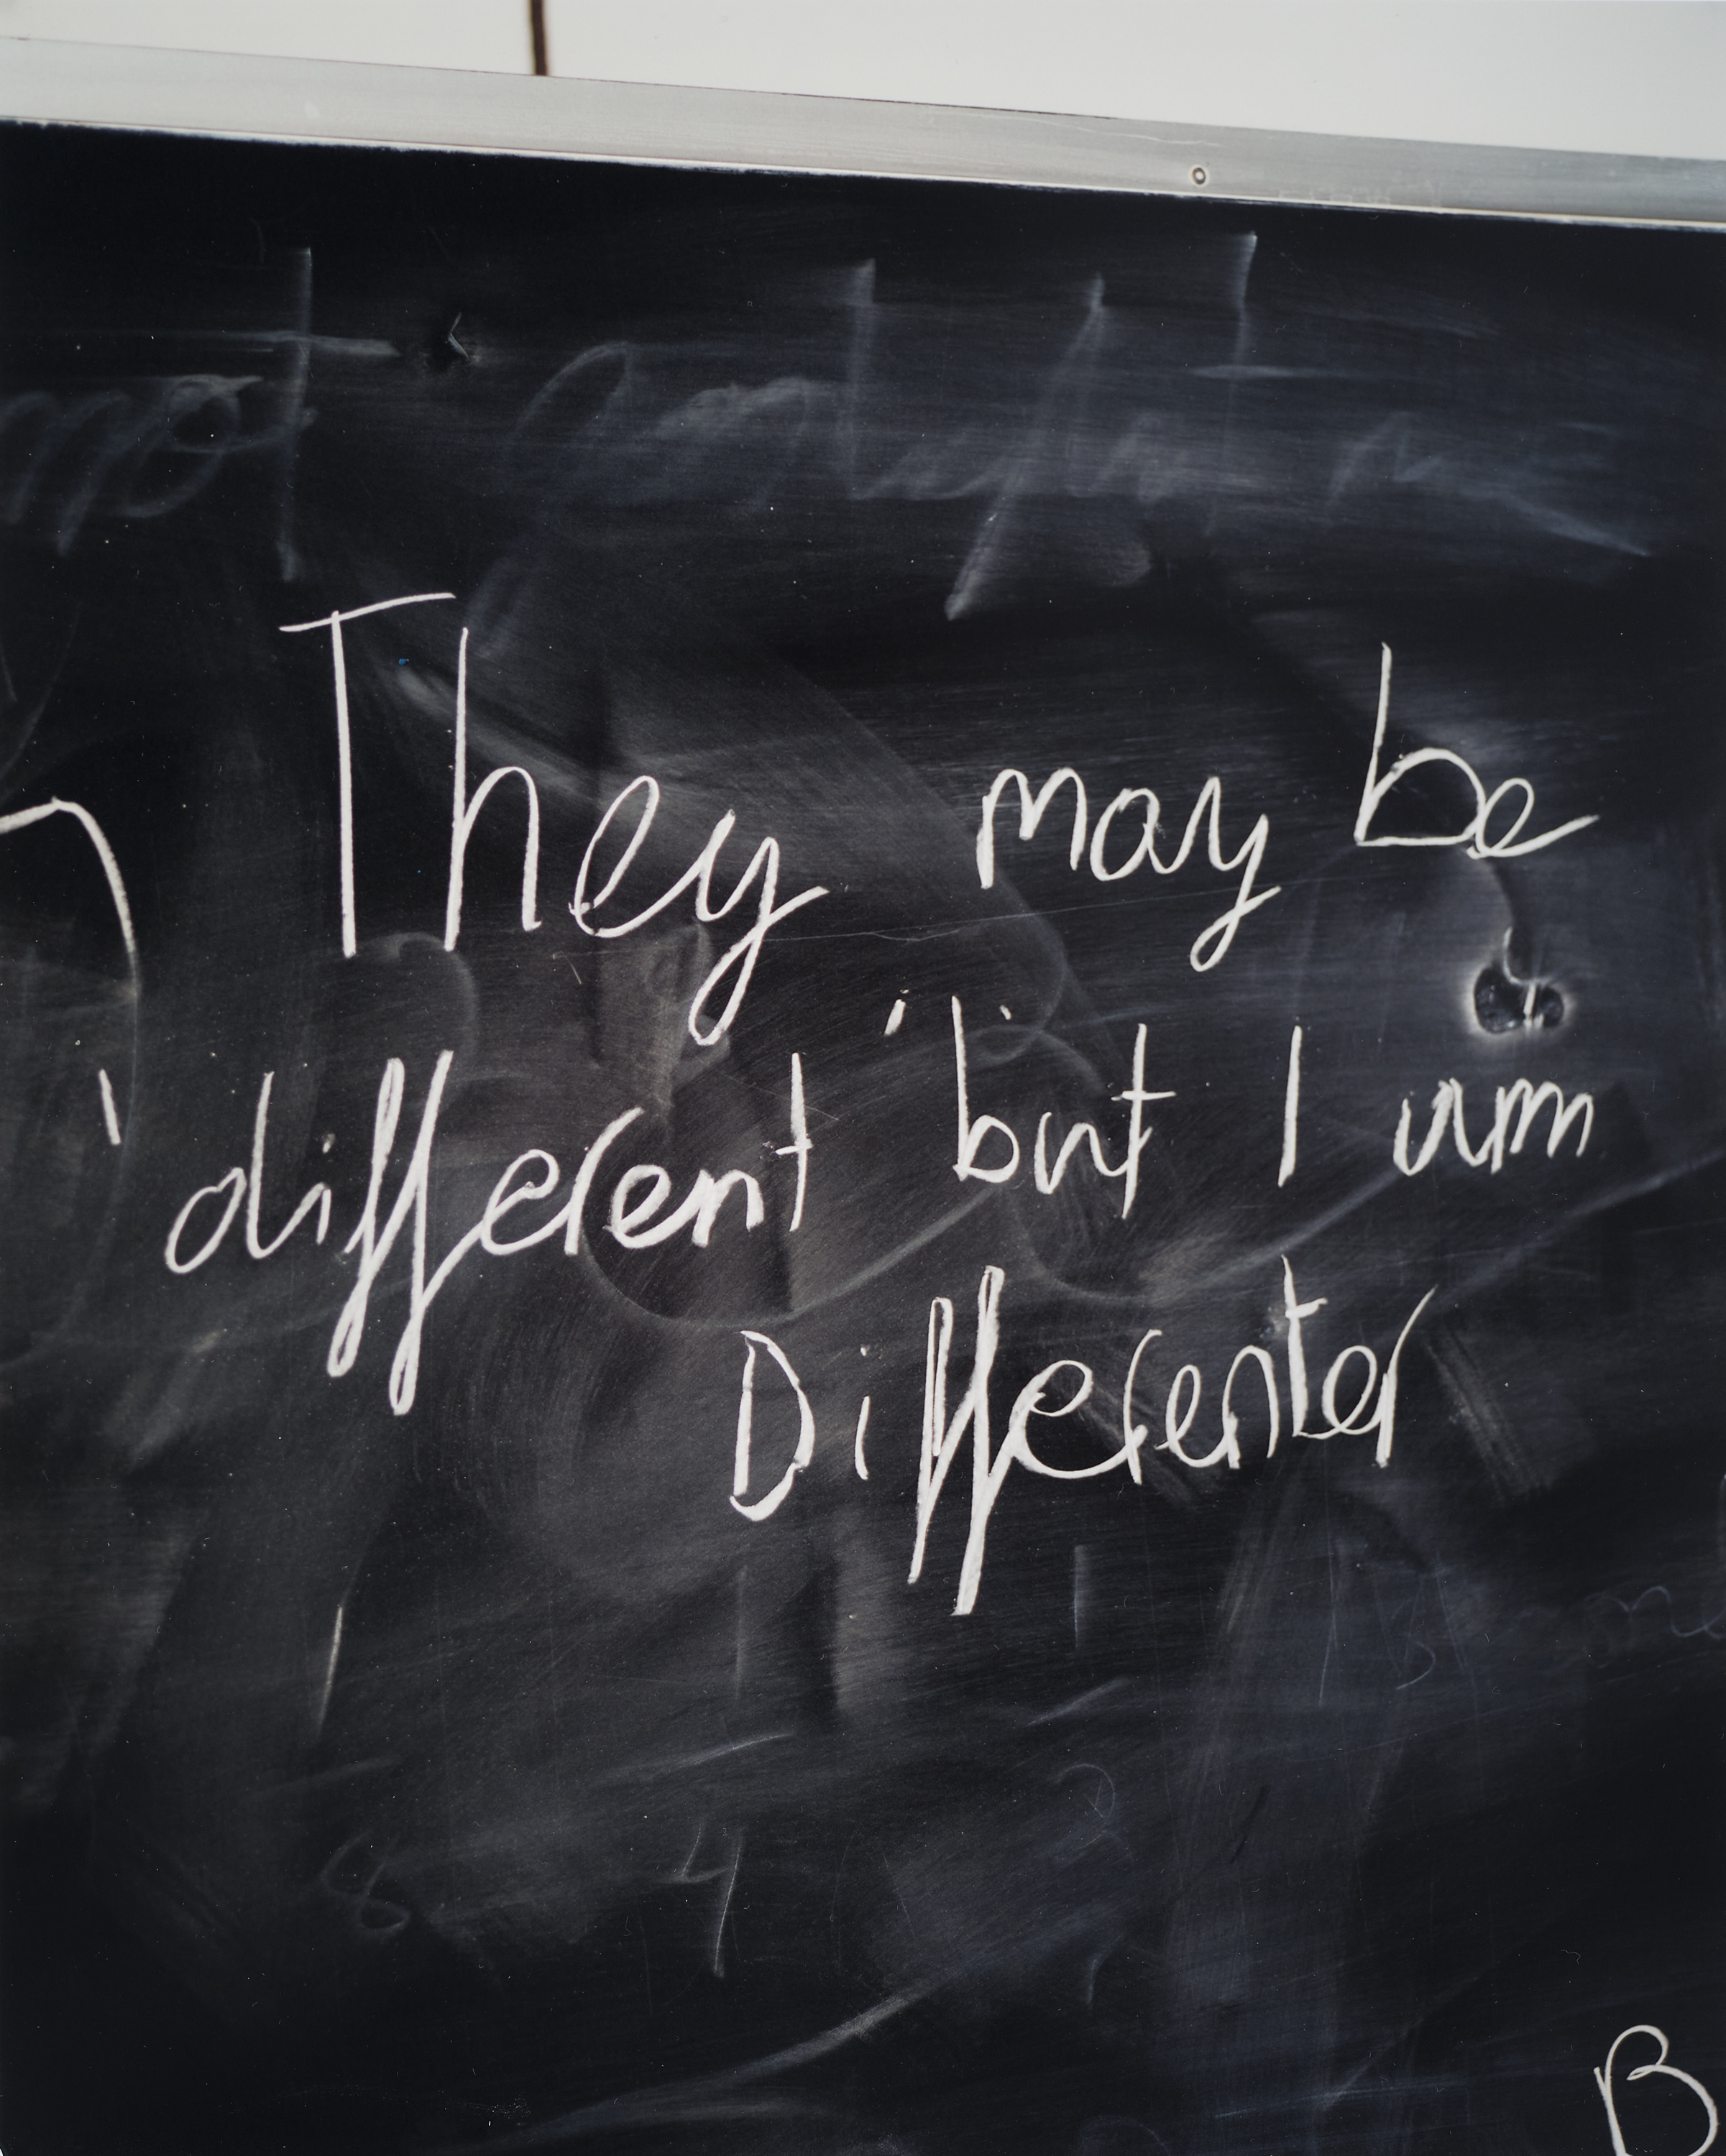 not
They may be
different but I am
Differenter
B